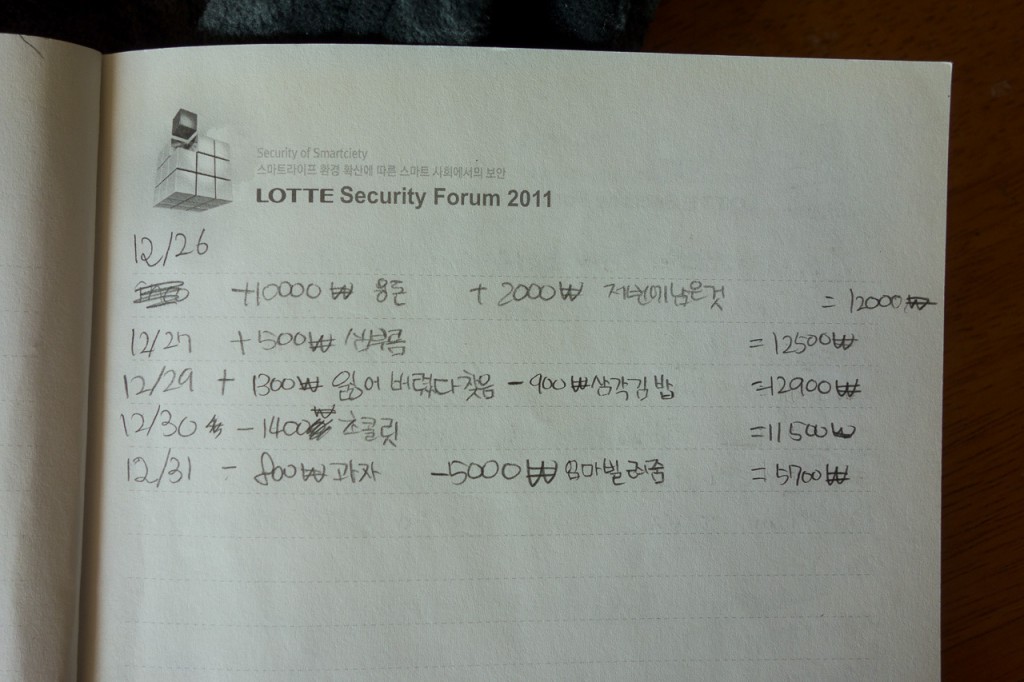 Security of Smartciety
스마트라이프 환경 확산에 따른 스마트 사회에서의 보안
LOTTE Security Forum 2011
12/26
+10000₩ 용돈 + 2000₩ 저번에남은것 = 12000₩
12/27 +500₩ 심부름 = 12500₩
12/29 + 1300₩ 잃어버렸다찾음 -900₩삼각김밥 =12900₩
12/30 -1400₩ 초콜릿 =11500₩
12/31 - 800₩과자 -5000₩엄마빌려줌 =5700₩